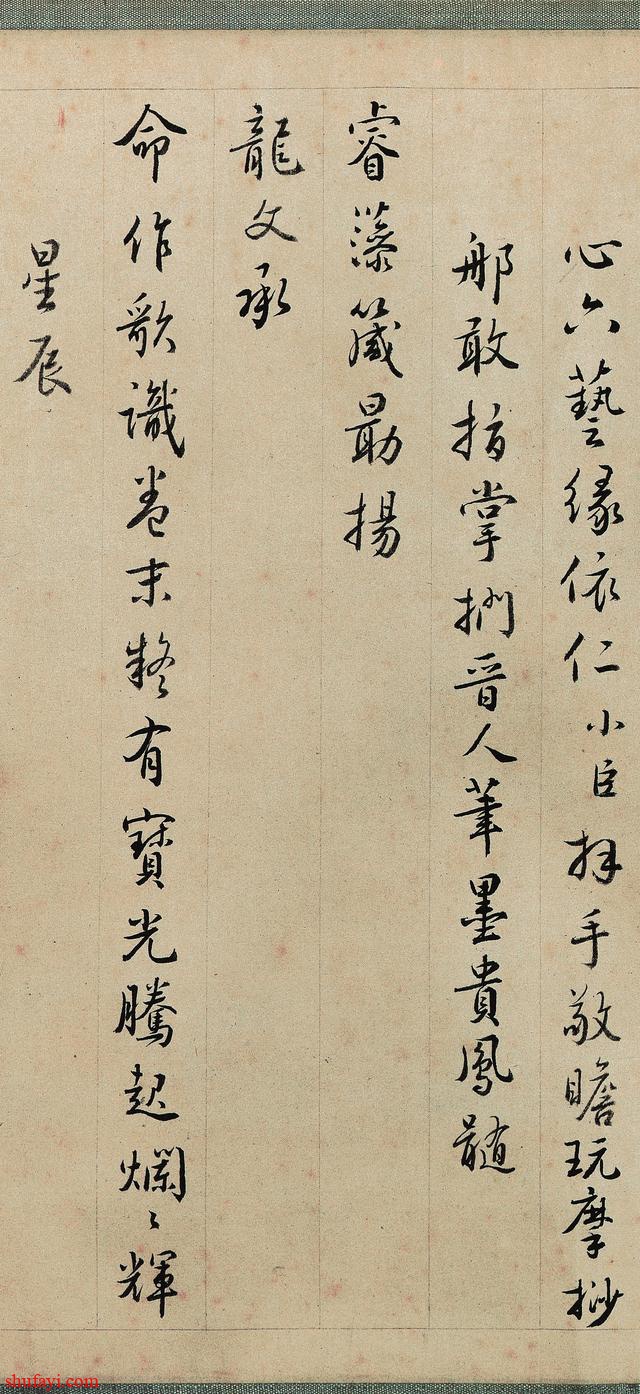 心六藝緣依仁小臣拜手敬瞻玩摩挱
那敢指掌捫晉人筆墨貴鳳髓
睿藻箴最揚
龍文承
命作歌識卷末疑有寶光騰起爛〻輝
星辰
shufayi.com